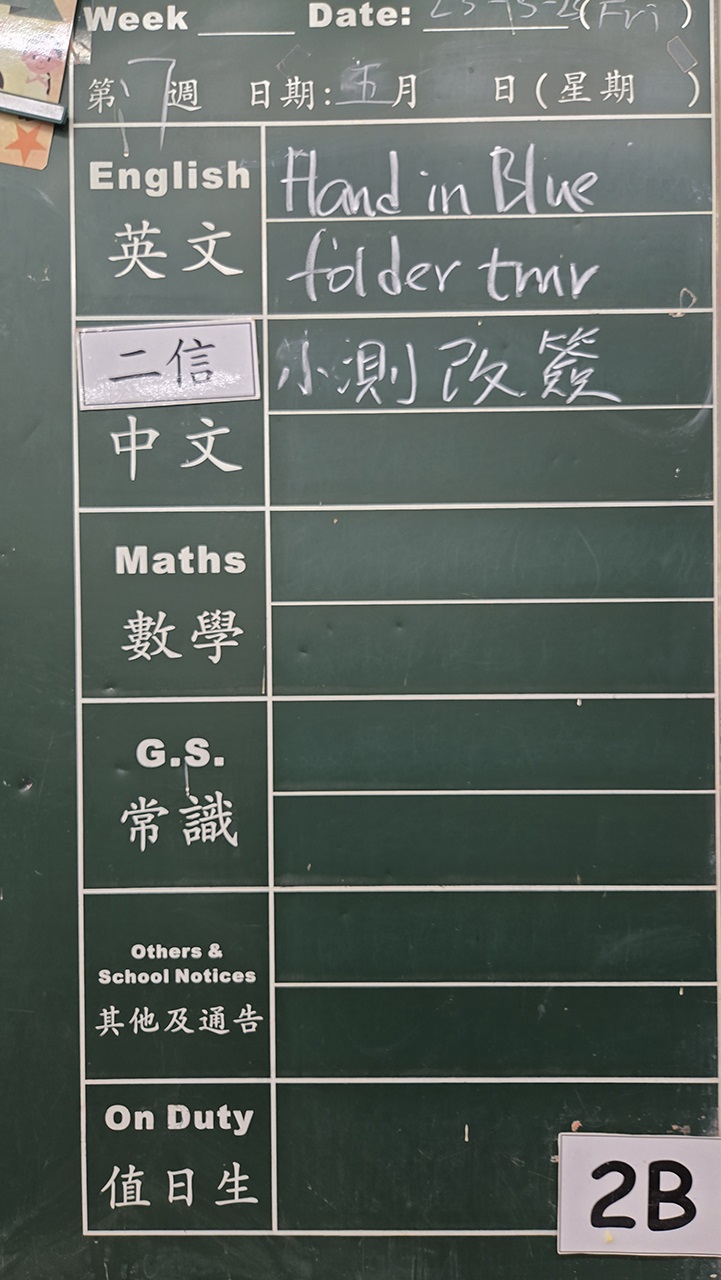 Week Date: (Fri)
第17週 日期: 五月 日(星期 )
English Hand in Blue
英文 folder tmr
二信 小測改簽
中文
Maths
數學
G.S.
常識
Others &
School Notices
其他及通告
On Duty
值日生
2B